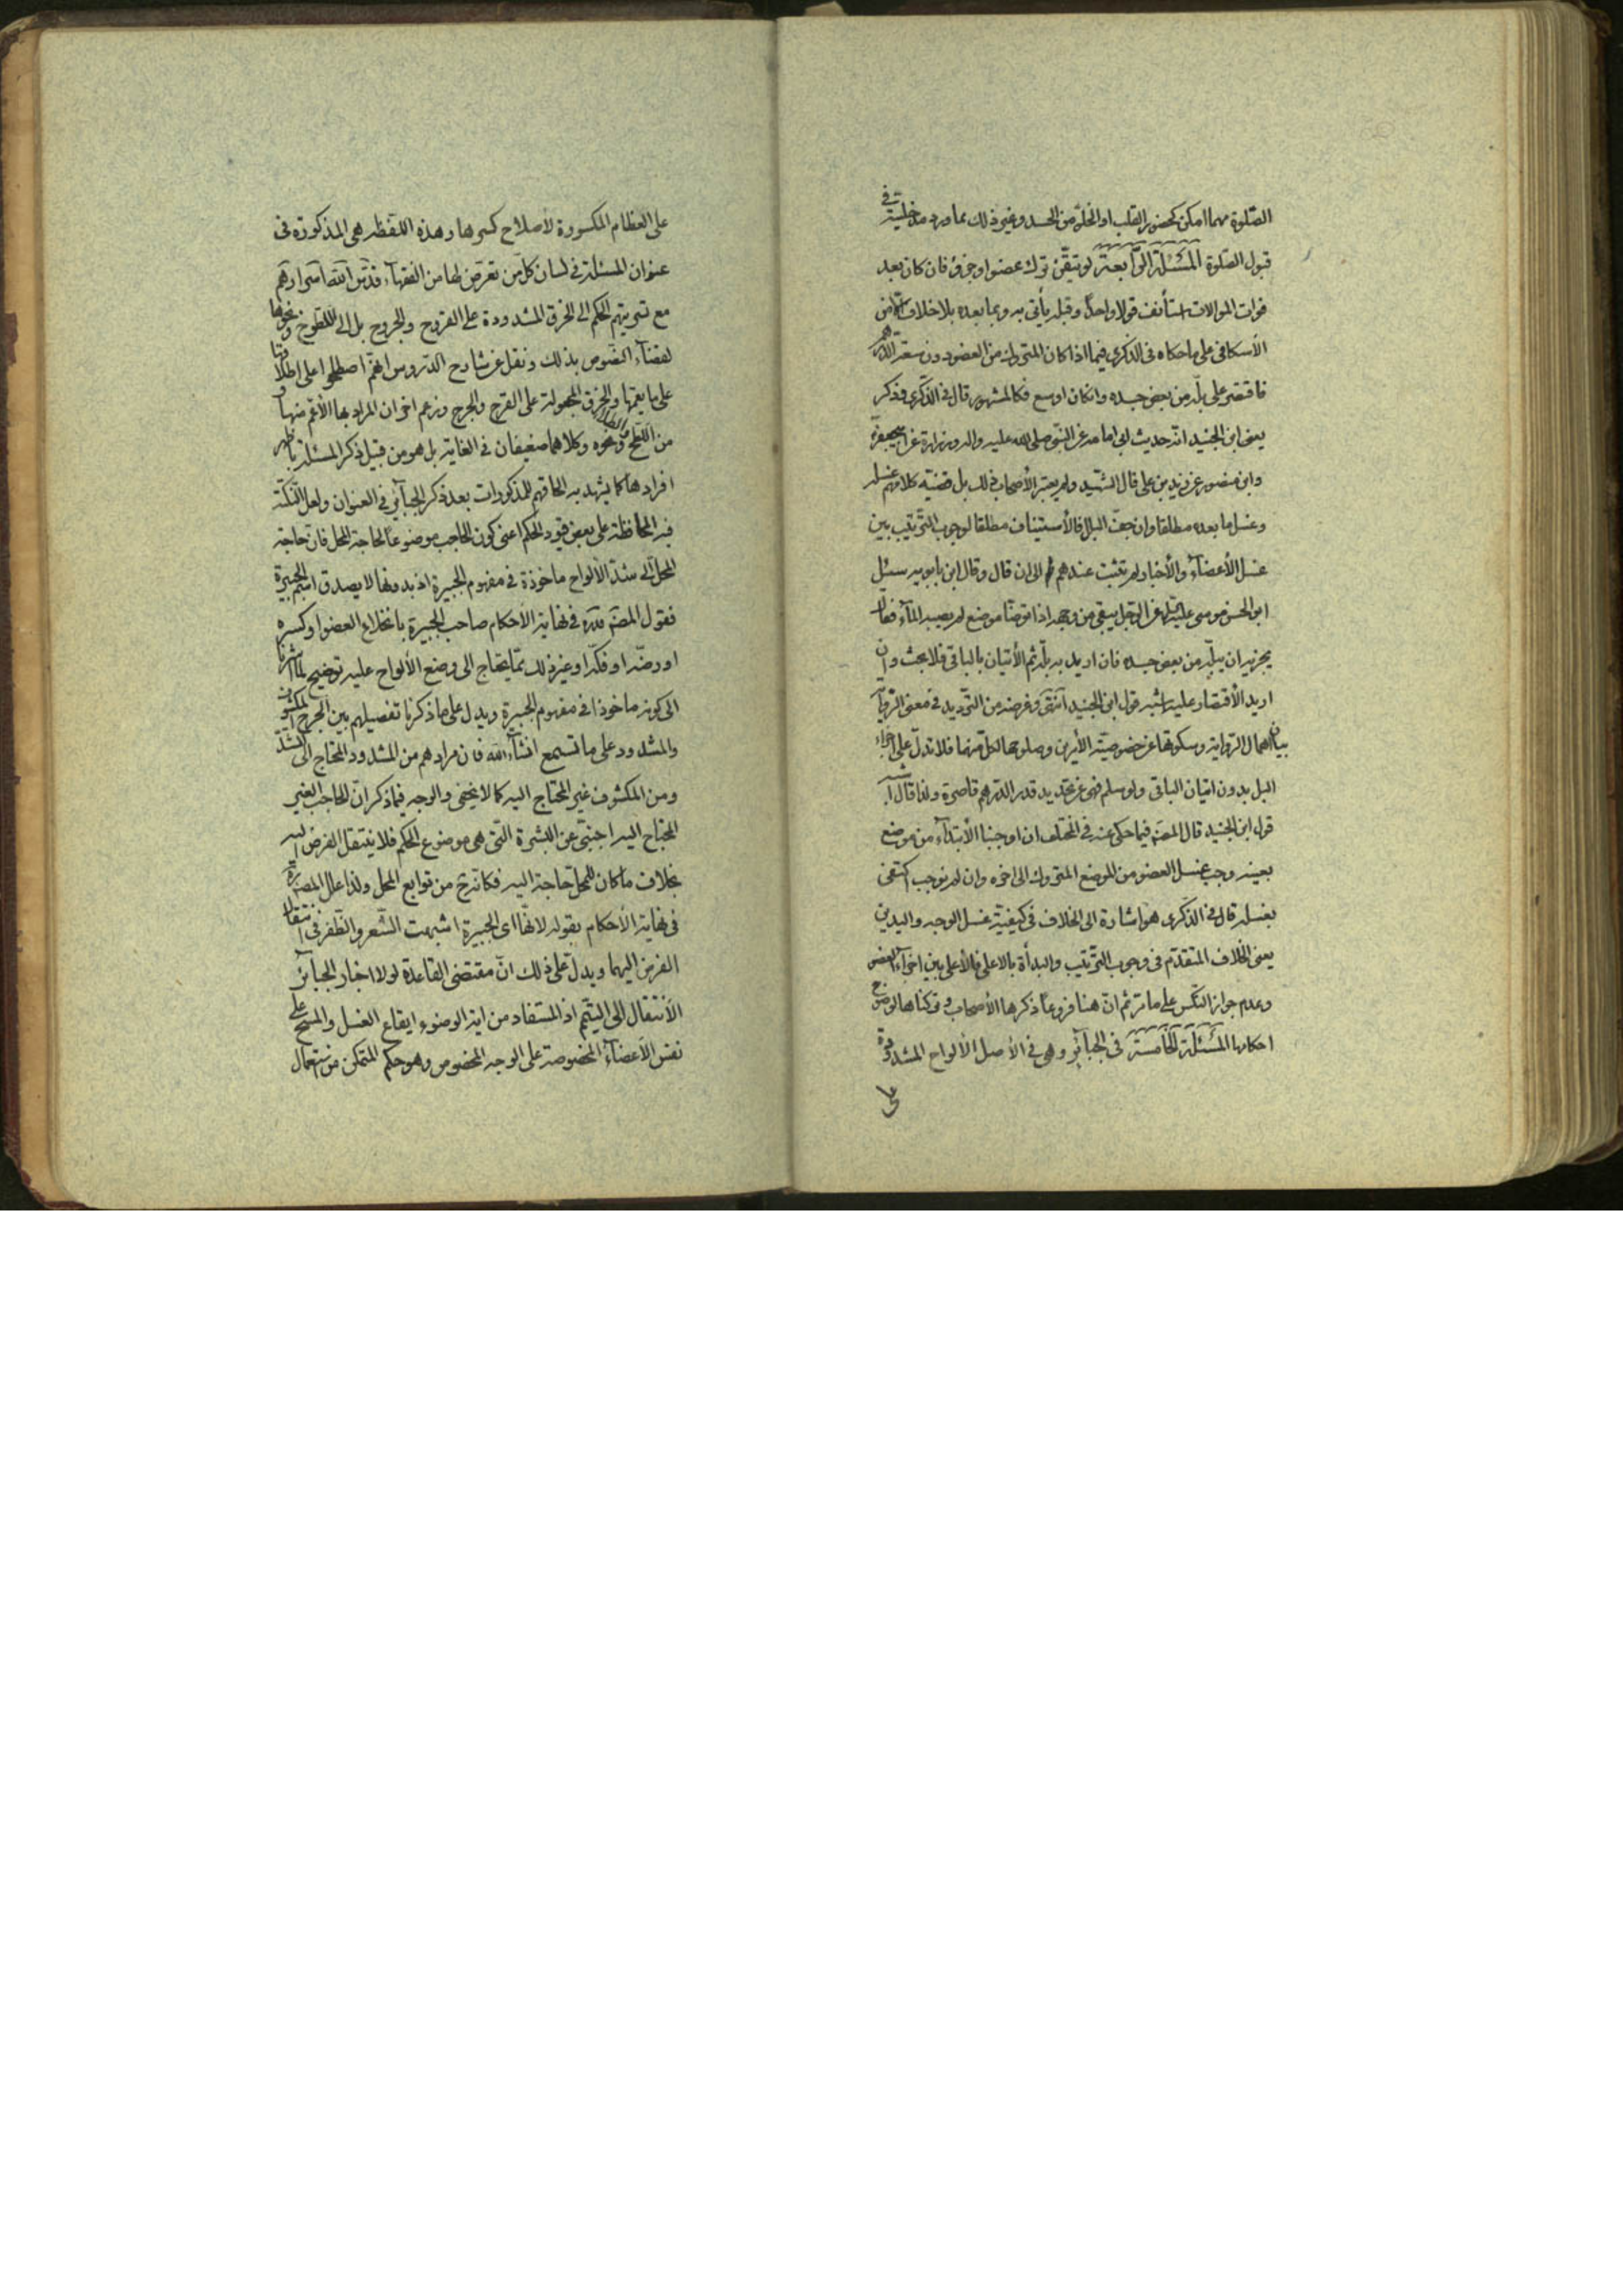 الصّلوة مهما امكن كحضور القلب او الخلوّ من الحسد وغير ذلك مما ورد مدخليته في
قبول الصّلوة المسئلة الرّابعة لو تيقّن ترك عضو او جزئه فان كان بعد
فوات الموالات استأنف قولا واحدا وقبله يأتي به وبما بعده بلا خلاف الا من
الأسكافي على ما حكاه في الذكرى فيما اذا كان المتروك من العضو دون سعة الدرهم
فاقتصر على بلّه من بعض جسده وان كان اوسع فكالمشهور قال في الذّكرى وذكر
يعنى ابن الجنيد انّه حديث ابي امامه عن النّبي صلى الله عليه واله وزرارة عن ابيجعفر
وابن منصور عن زيد بن علي قال الشّهيد ولم يعتبر الأصحاب ذلك بل قضيّة كلامهم غسله
وغسل ما بعده مطلقا وان جفّ البلل فالأستيناف مطلقا لوجوب التّرتيب بين
غسل الأعضاء والأخبار لم تثبت عندهم الى ان قال وقال ابن بابويه سئل
ابو الحسن موسى عليه السّلم عن الرّجل يبقى من وجهه اذا توضّأ موضع لم يصبه الماء فقال
يجزيه ان يبلّه من بعض جسده فان اريد به بلّه ثم الأتيان بالباقي فلا بحث وان
اريد الأقتصار عليه اشبه قول ابن الجنيد انتهى وغرضه من التّرديد في معنى الرّواية
بيان اهمال الرّواية وسكوتها عن خصوصيّة الأمرين وصلوحها لكلّ منهما فلا تدلّ على اجزاء
البل بدون اتيان الباقي ولو سلم فهى عن تحديد قدر الدّرهم قاصرة ولذا قال اشبه
قول ابن الجنيد قال المصنه فيما حكى عنه في المختلف ان اوجبنا الأبتداء من موضع
بعينه وجب غسل العضو من الموضع المتروك الى اخره وان لم نوجب اكتفى
بغسله قال في الذكرى هو اشارة الى الخلاف في كيفيّة غسل الوجه واليدين
يعنى الخلاف المتقدّم في وجوب التّرتيب والبدأة بالاعلى فالأعلى بين اجزاء العضو
وعدم جواز النّكس على ما مرّ ثم انّ هنا فروعا ذكرها الأصحاب وتركناها لوضوح
احكامها المسئلة الخامسة في الجبآئر وهي في الأصل الألواح المشدودة
على
على العظام المكسورة لأصلاح كسرها وهذه اللّفظه هي المذكورة في
عنوان المسئلة في لسان كلّ من تعرّض لها من الفقهآء قدّس الله اسرارهم
مع تسريتهم الحكم الى الخرق المشدودة على القروح والجروح بل الى اللّطوخ ونحوها
لقضآء النّصوص بذلك ونقل عن شارح الدّروس انهم اصطلحوا على اطلاقها
على ما يعمّها والخرق المجعولة على القرح والجرح وزعم اخر ان المراد بها الأعم منها و
من اللّطخ ونحوه وكلاهما ضعيفان في الغاية بل هو من قبيل ذكر المسئلة باظهر
افرادها كما يشهد به الحاقهم للمذكورات بعد ذكر الجبآئر في العنوان ولعل النّكتة
فيه المحافظة على بعض قيود الحكم اعنى كون الحاجب موضوعا لحاجة المحل فان حاجة
المحلّ الى شدّ الألواح ماخوذة في مفهوم الجبيرة اذ بدونها لا يصدق اسم الجبيرة
فقول المصنه قدّه في نهاية الأحكام صاحب الجبيرة بانخلاع العضو او كسره
او رضّه او فكّه او غير ذلك ممّا يحتاج الى وضع الألواح عليه توضيح لما اشرنا
الى كونه ماخوذا في مفهوم الجبيرة ويدل على ما ذكرنا تفصيلهم بين الجرح المكشوف
والمشدود على ما تسمع انشآء الله فان مرادهم من المشدود المحتاج الى الشدّ
ومن المكشوف غير المحتاج اليه كما لا يخفى والوجه فيما ذكر انّ الحاجب الغير
المحتاج اليه اجنبىّ عن البشرة الّتى هي موضوع الحكم فلا ينتقل الفرض اليه
بخلاف ما كان للمحلّ حاجة اليه فكانّه ح من توابع المحل ولذا علل المصنه قدّه
في نهاية الأحكام بقوله لانّها اى الجبيرة اشبهت الشّعر والظّفر في انتقال
الفرض اليهما ويدلّ على ذلك انّ مقتضى القاعدة لولا اخبار الجبآئر
الأنتقال الى التيمّم اذ المستفاد من اية الوضوء ايقاع الغسل والمسح على
نفس الأعضآء المخصوصة على الوجه المخصوص وهو حكم المتمكن من استعمال